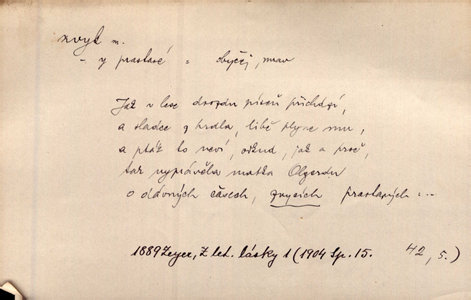 zvyk m.
- y prastaré = obyčej, mrav
Jak v lese drozdu píseň přichází,
a sladce z hrdla, libě plyne mu,
a pták to neví, odkud, jak a proč,
tak vyprávěla matka Olgerdu
o dávných časech, zvycích prastarých ...
1889 Zeyer, Z let. lásky 1 (1904 Sp. 15. 42, 5.)